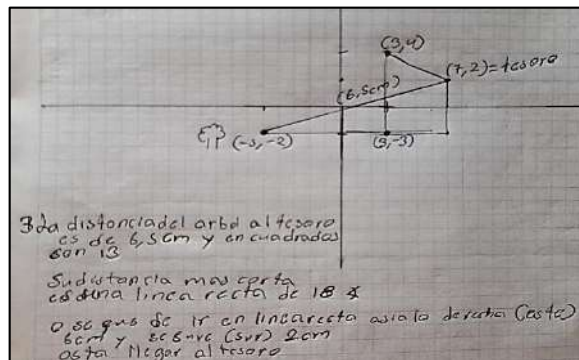 (3,4)
(7,2)=tesoro
(6,5cm)
(-5,-2)
(3,-3)
3 La distancia del arbol al tesoro
es de 6,5cm y en cuadrados
son 13
Su distancia mas corta
es una linea recta de 18
o se que de ir en linea recta asia la derecha (este)
6cm y se sube (sur) 2cm
asta llegar al tesoro